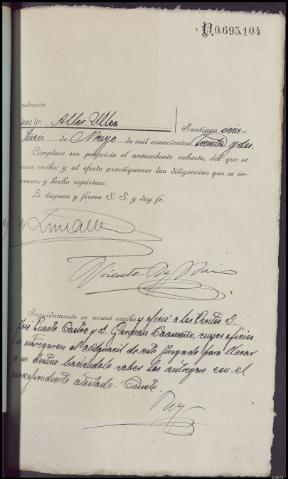 D.0.695.104
idencia
uez Sr. Aller Ulloa
Santiago veis-
ticeis de Mayo de mil novecientos treinta y dos.
Cúmplase sin perjuicio el antecedente exhorto, del que se
acuse recibo; y al efecto practíquense las diligencias que se in-
teresan; y hecho repórtese.
Lo dispuso y firma S. S. y doy fe.
Aller
Vicente Rey
Seguidamente se acusó recibo y ofició a los Peritos D.
José Puente Castro y D. Germán Caamaño, cuyos oficios
se entregaron al alguacil de este Juzgado para llevar
a su destino haciéndole saber los entregue con el
correspondiente atestado.
Rey